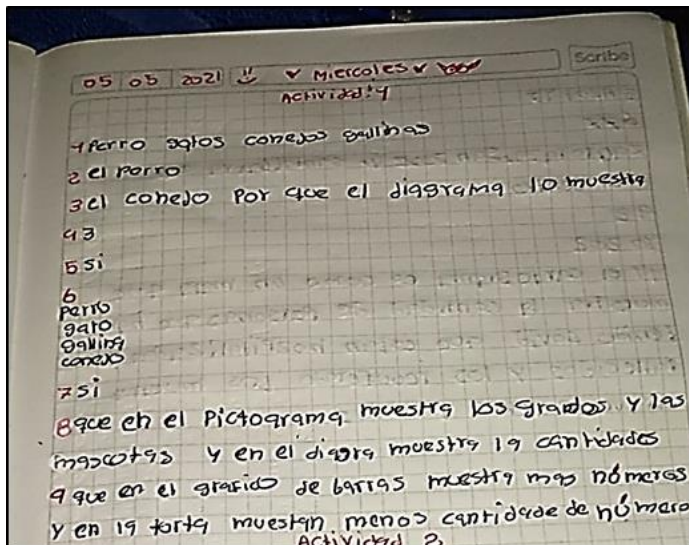 Scribe
05 05 2021 Miercoles
Actividad: 4
1 Perro gatos conejos gallinas
2 el Perro
3 el conejo Por que el diagrama lo muestra
4 3
5 si
6
perro
gato
gallina
conejo
7 si
8 que en el Pictograma muestra los grados y las
mascotas y en el diagra muestra la cantidades
9 que en el grafico de barras muestra mas números
y en la torta muestan menos cantidade de número
Actividad 2